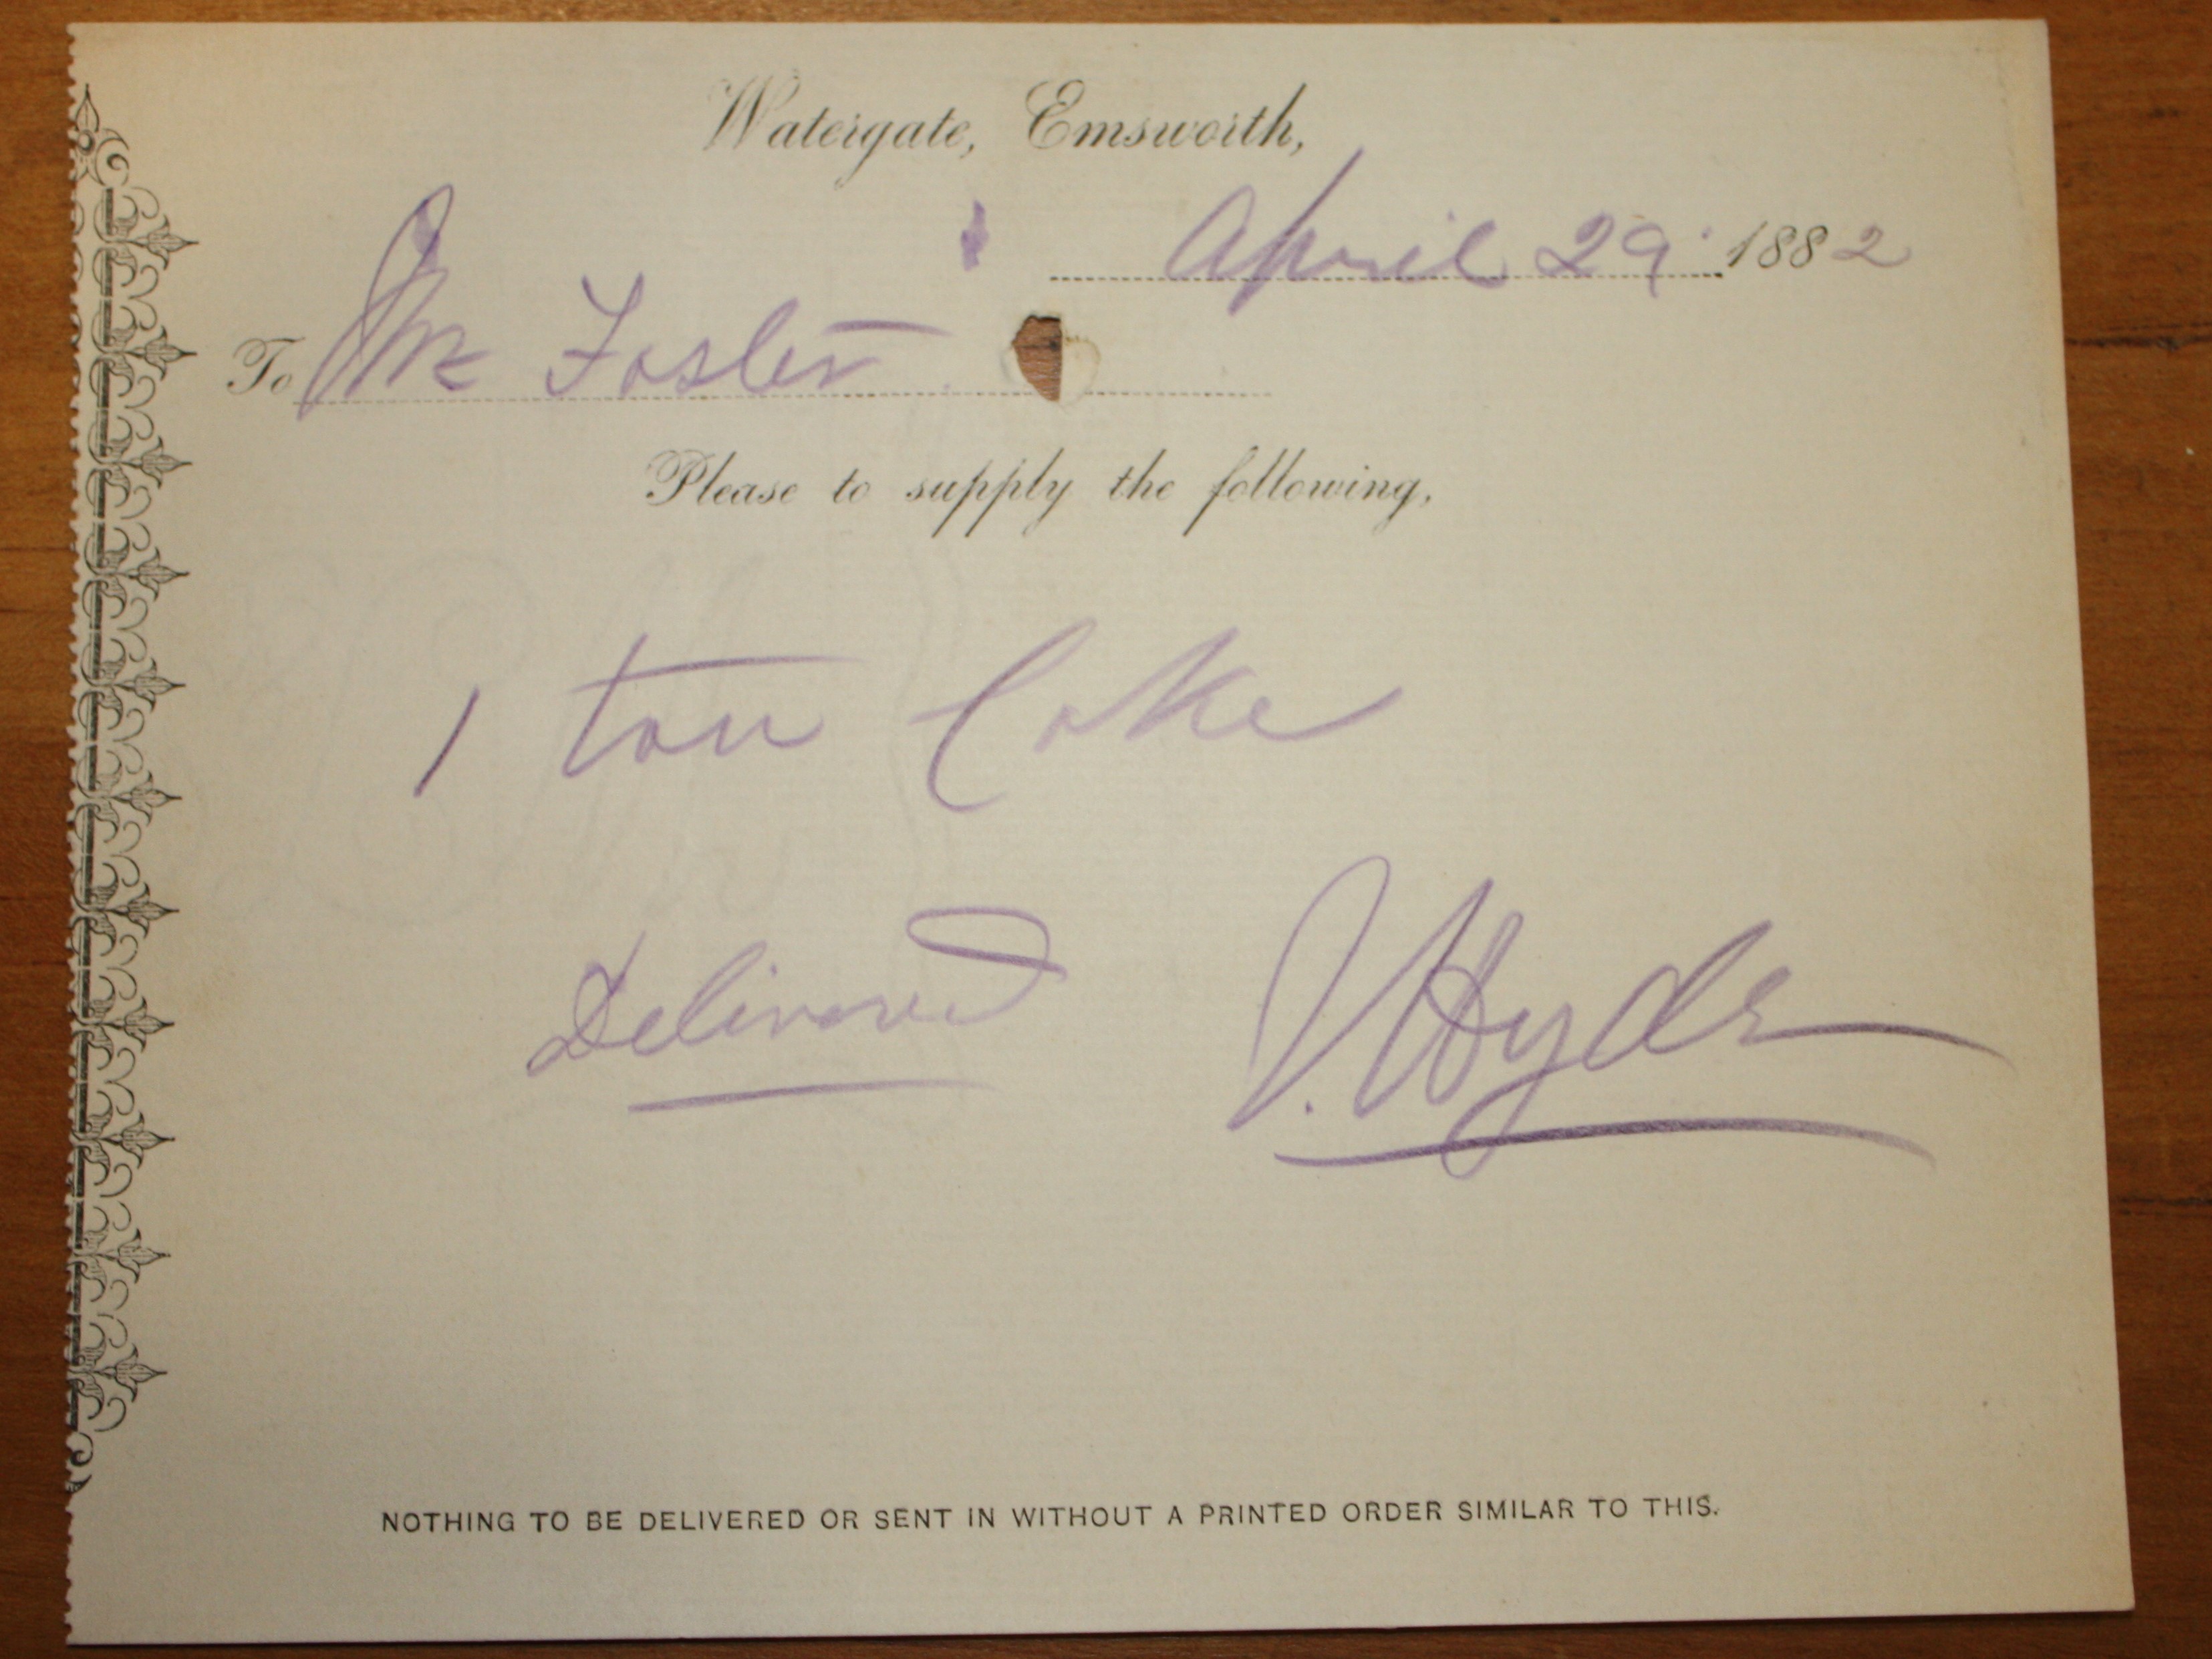 Watergate, Emsworth,
April 29 1882
To Mr Foster
Please to supply the following,
1 ton Coke
Delivered
J. Hyde
NOTHING TO BE DELIVERED OR SENT IN WITHOUT A PRINTED ORDER SIMILAR TO THIS.